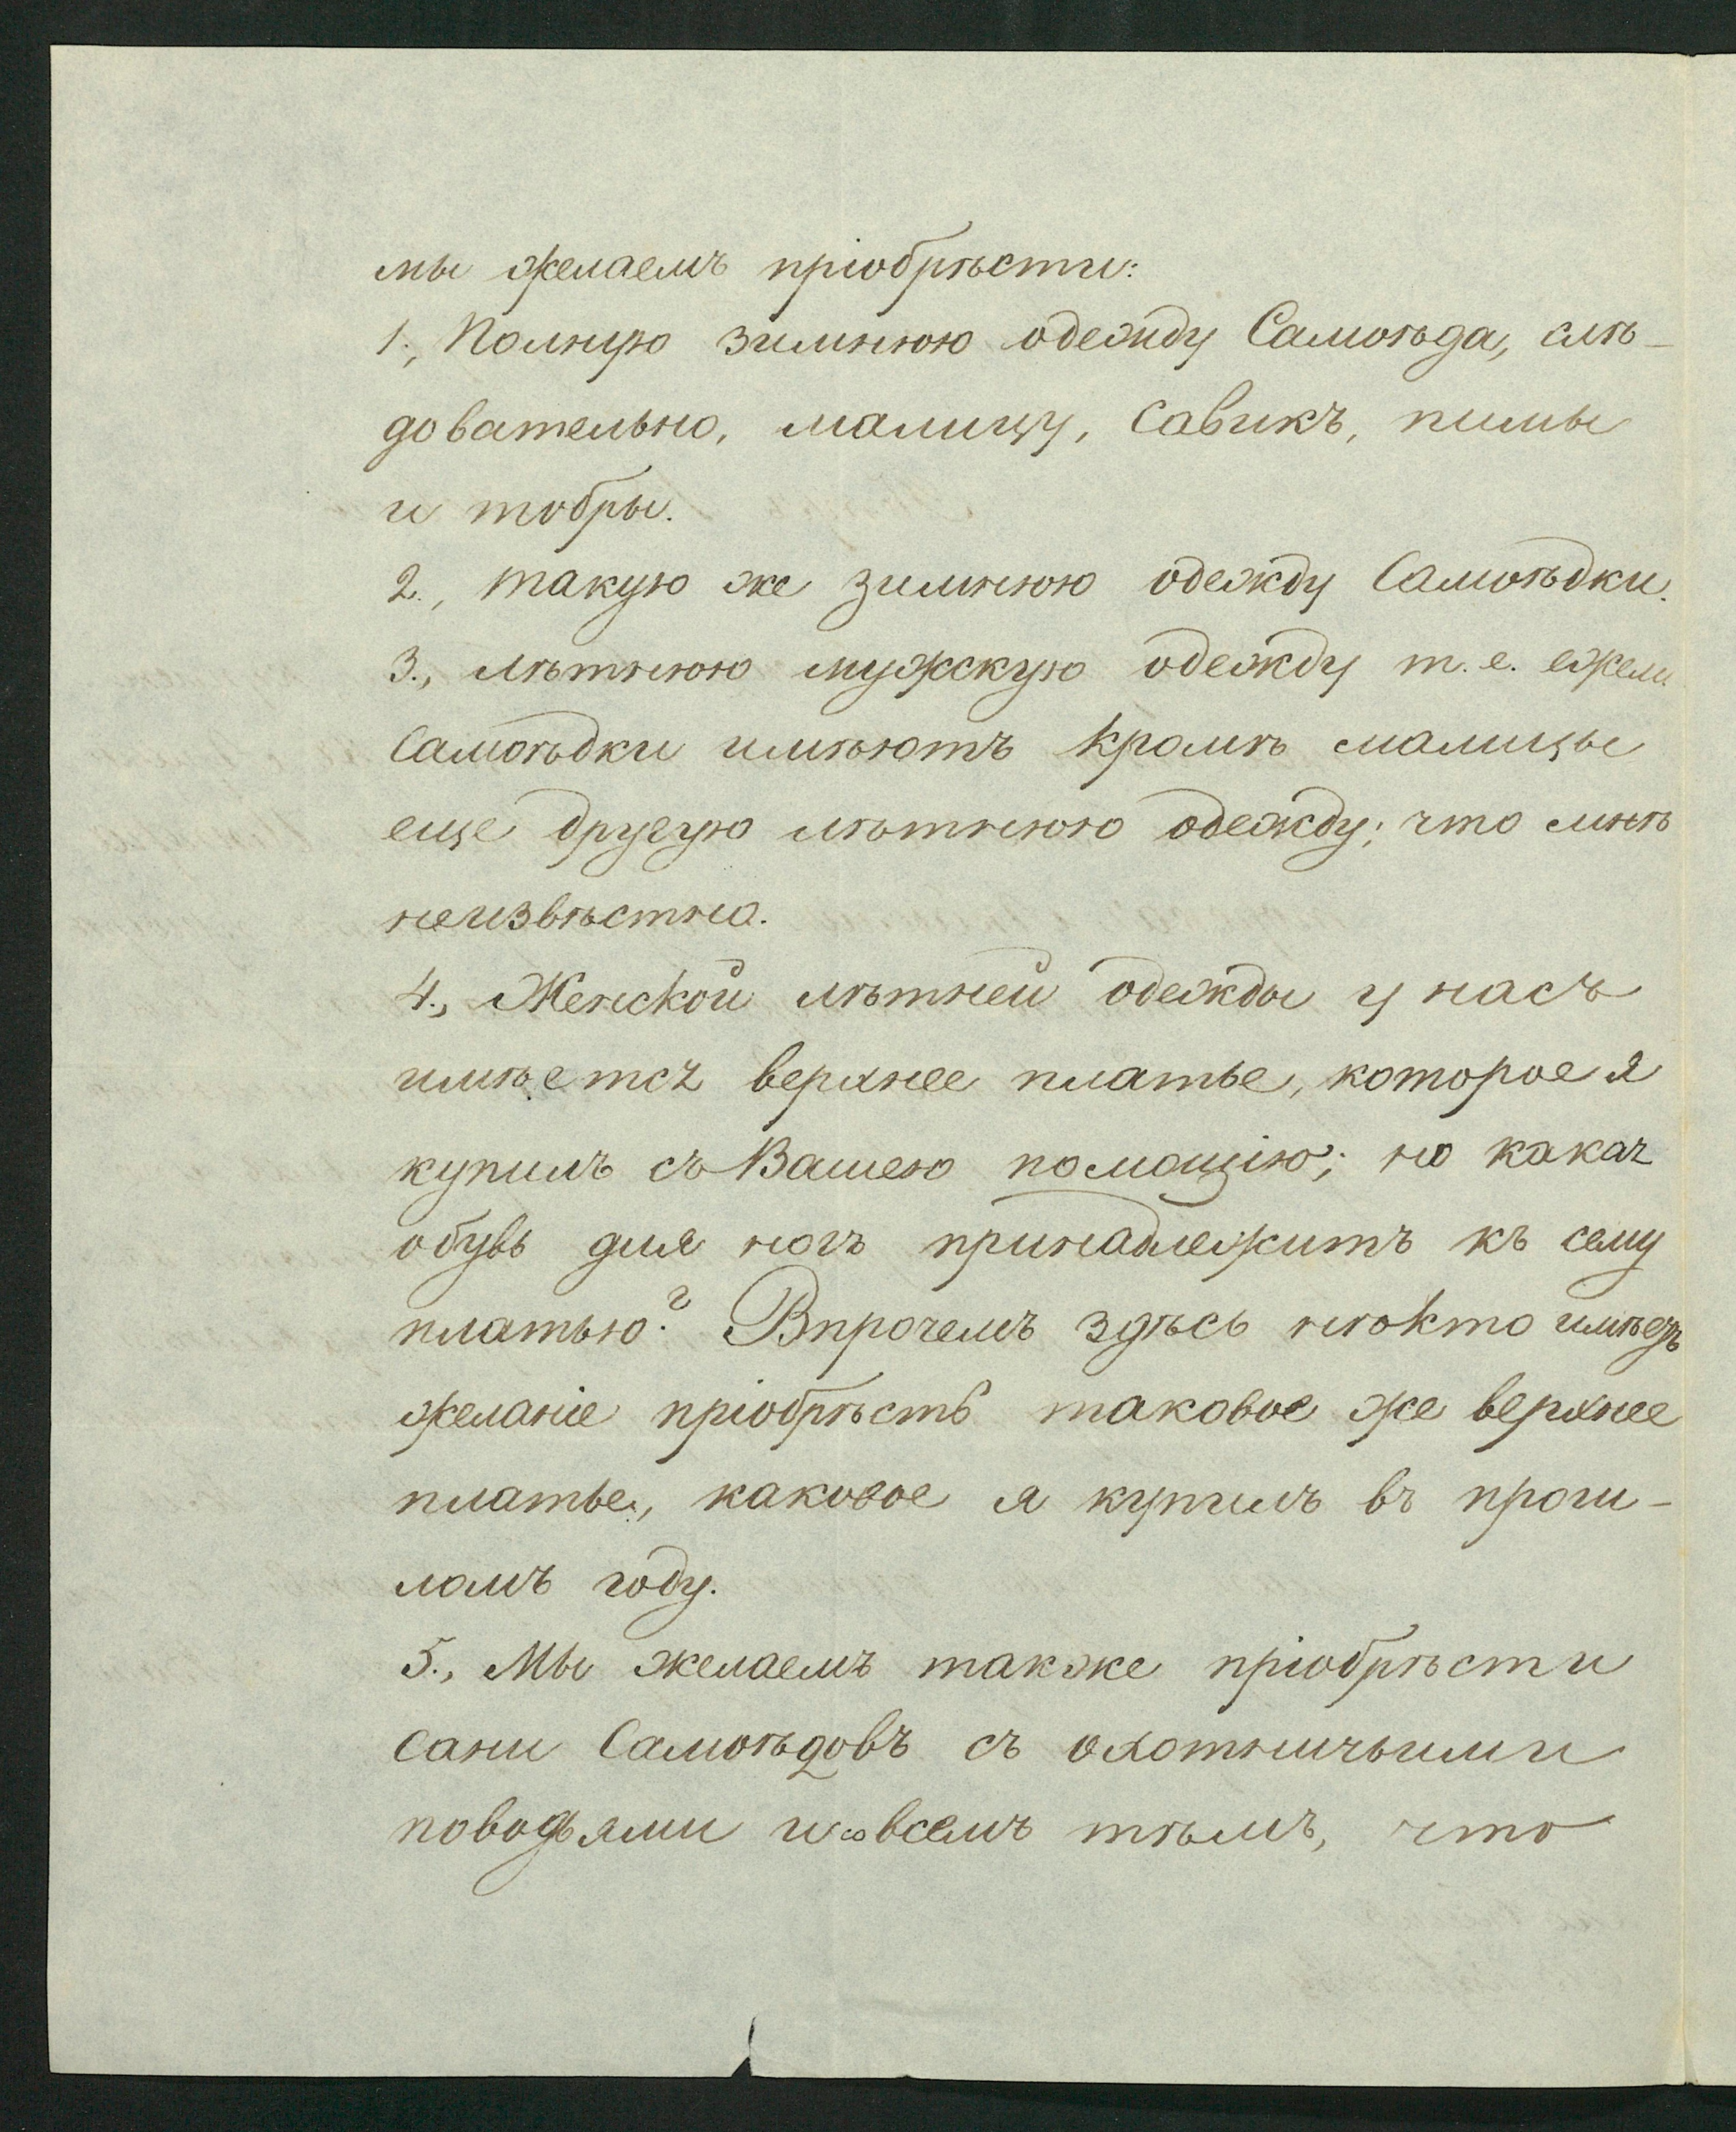 мы желаемъ пріобрѣсти:
1., Полную зимнюю одежду Самоѣда, слѣ-
довательно, малицу, Савикъ, пимы
и тобры.
2., такую же зимнюю одежду Самоѣдки.
3., лѣтнюю мужскую одежду т. е. ежели
Самоѣдки имѣютъ кромѣ малицы
еще другую лѣтнюю одежду; что мнѣ
неизвѣстно.
4., Женской лѣтней одежды у насъ
имѣется верхнее платье, которое я
купилъ съ Вашею помощію; но какая
обувь для ногъ принадлежитъ къ сему
платью? Впрочемъ здѣсь нѣкто имѣетъ
желаніе пріобрѣсть таковое же верхнее
платье, каковое я купилъ въ прош-
ломъ году.
5., Мы желаемъ также пріобрѣсти
Сани Самоѣдовъ съ охотничьими
поводьями и со всемъ тѣмъ, что